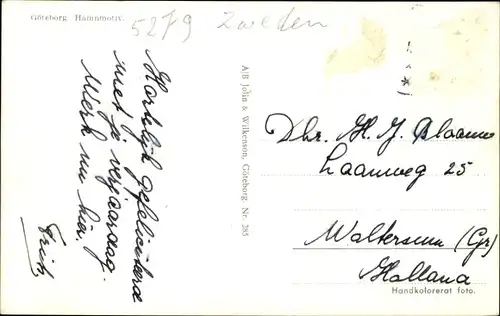 Göteborg. Hamnmotiv.
5279 Zweden
Hartelijk gefeliciteerd
met je verjaardag.
Werk nu hier.
A/B Jolin & Wilkenson, Göteborg. Nr. 285
Dhr. H. J. Blaauw
Laanweg 25
Holland
Handkolorerat foto.